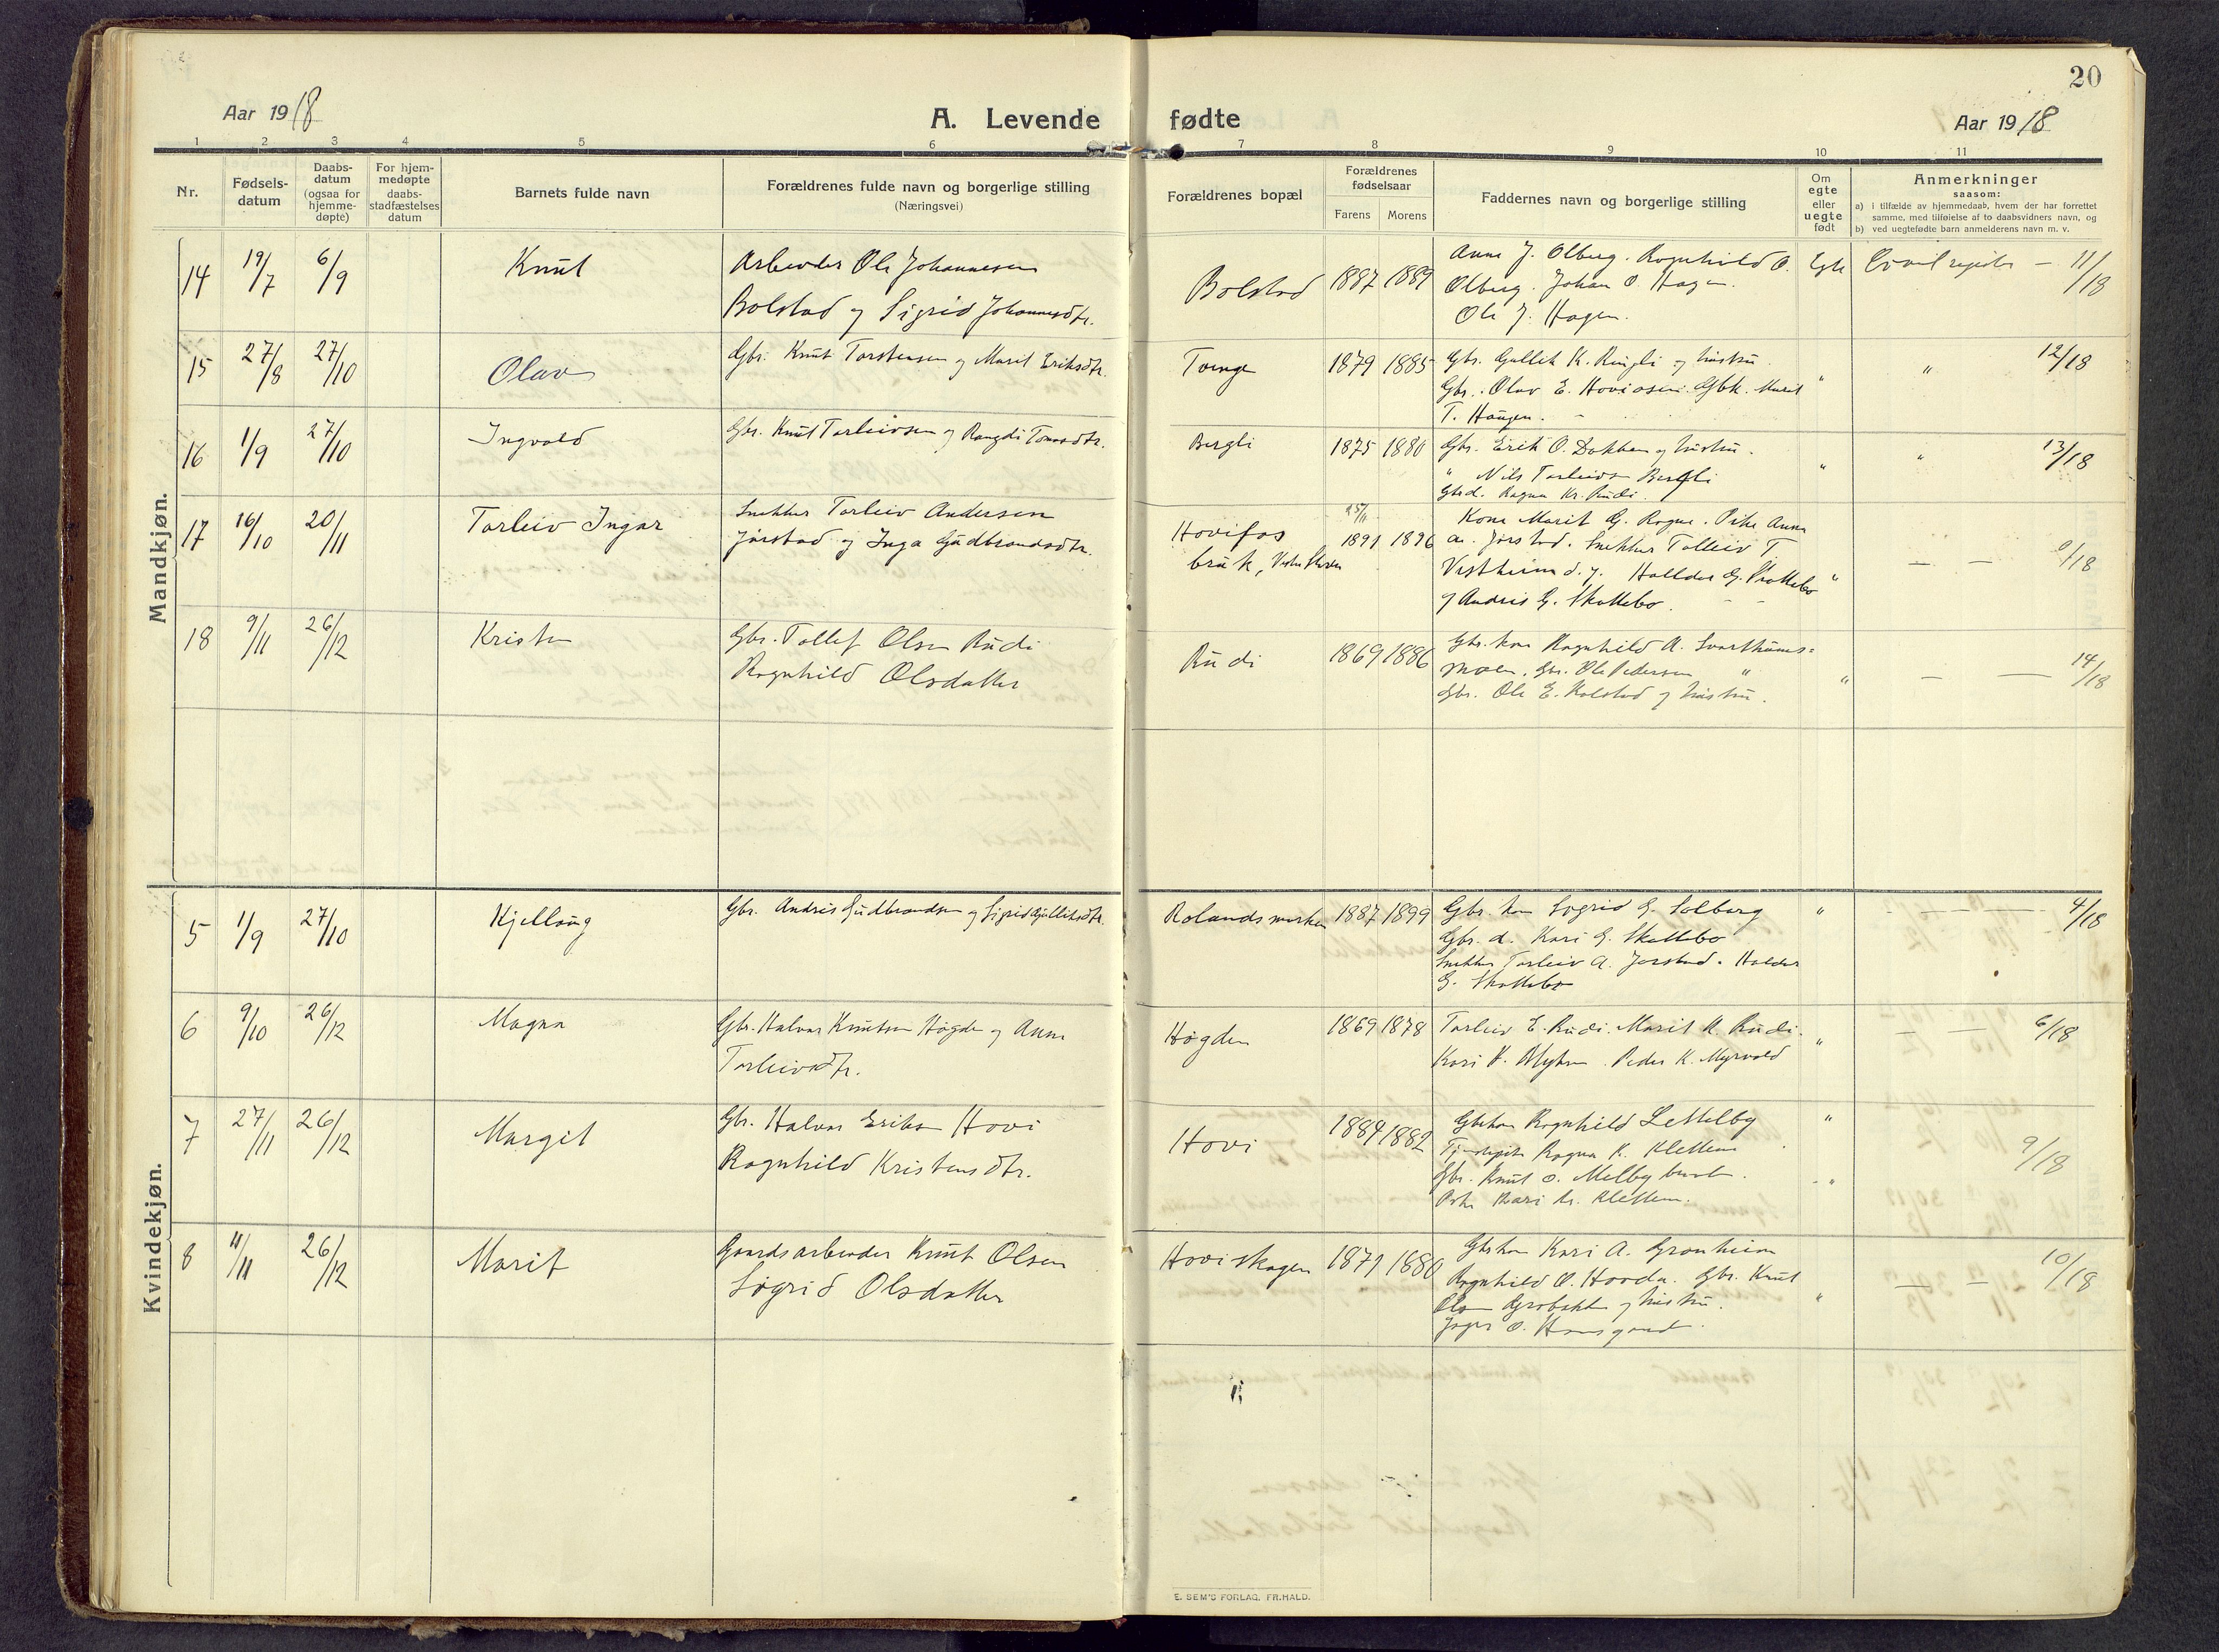 20
Aar 1918
A. Levende fødte
Aar 1918
1 2 3 4 5 6 7 8 9 10 11
Nr.
Fødsels-
datum
Daabs-
datum
(ogsaa for
hjemme-
døpte)
For hjem-
medøpte
daabs-
stadfæstelses
datum
Barnets fulde navn
Forældrenes fulde navn og borgerlige stilling
(Næringsvei)
Forældrenes bopæl
Forældrenes
fødselsaar
Farens Morens
Faddernes navn og borgerlige stilling
Om
egte
eller
uegte
født
Anmerkninger
saasom:
a) i tilfælde av hjemmedaab, hvem der har forrettet
samme, med tilføielse av to daabsvidners navn, og
b) ved uegtefødte barn anmelderens navn m. v.
Mandkjøn.
14 19/7 6/9 Knut Arbeider Ole Johannesen
Bolstad og Sigrid Johannesdtr.
Bolstad 1887 1889
Anne J. Olberg. Ragnhild O.
Olberg. Johan O. Hagen.
Ole J. Hagen.
Egte Civil 11/18
15 27/8 27/10 Olav Gbr. Knut Torstensen og Marit Eriksdtr.
1879 1885
Gbr. Gullik K. Ringli og hustru.
Gbr. Olav E. Hovi Gbk. Marit
T. Haugen.
" " 12/18
16 1/9 27/10 Ingvald Gbr. Knut Torleivsen og Rangdi
Bergli 1875 1880
Gbr. Erik O. Dokken og hustru.
" Nils Torleivs Bergli
Ragna Kr. Rudi.
" " 13/18
17 16/10 20/11 Torleiv Ingar Snekker Torleiv Andersen
Jørstad og Inga Gudbrandsdtr.
Hovifos
bruk, Vestre Slidre
25/11
1891 1896
Kone Marit G. Rogne. Pike Anna
A. Jørstad. Snekker Tolleiv T.
Vestheim d. y. Halldor G. Skattebo
og Andris G. Skattebo.
" — — /18
18 9/11 26/12 Kristen Gbr. Tollef Olsen Rudi
Ragnhild Olsdatter
Rudi 1869 1886
Gbr. kone Ragnhild A. Svarthams=
moen. Gbr. Ole Pedersen "
Gbr. Ole E. Kolstad og hustru.
" — — 14/18
Kvindekjøn.
5 1/9 27/10 Kjellaug Gbr. Andris Gudbrandsen og Sigrid Gulliksdtr.
Rolandsmarken 1887 1899
Gbr. kone Sigrid G. Solberg
Gbr. d. Kari G. Skattebo
Snekker Torleiv A. Jørstad. Haldor
G. Skattebo
" 4/18
6 9/10 26/12 Magna Gbr. Halvor Knutsen Høgden og Anne
Torleivsdtr.
Høgden 1869 1878
Torleiv E. Rudi. Marit K. Rudi.
Kari Myhre. Peder K. Myrvold
" — — 6/18
7 27/11 26/12 Margit Gbr. Halvor Eriksen Hovi
Ragnhild Kristensdtr.
Hovi 1884 1882
Ragnhild Lettelby
Ragna K. Klettum
Gbr. Knut O. Melby
Kari Kr. Klettum.
" 9/18
8 11/11 26/12 Marit Gaardsarbeider Knut Olsen
Sigrid Olsdatter
Hoviskogen 1871 1880
Kari A. Grønheim
Ragnhild O. Hovda. Gbr. Knut
Olsen og hustru.
" — — 10/18
E. SEM'S FORLAG. FR.HALD.